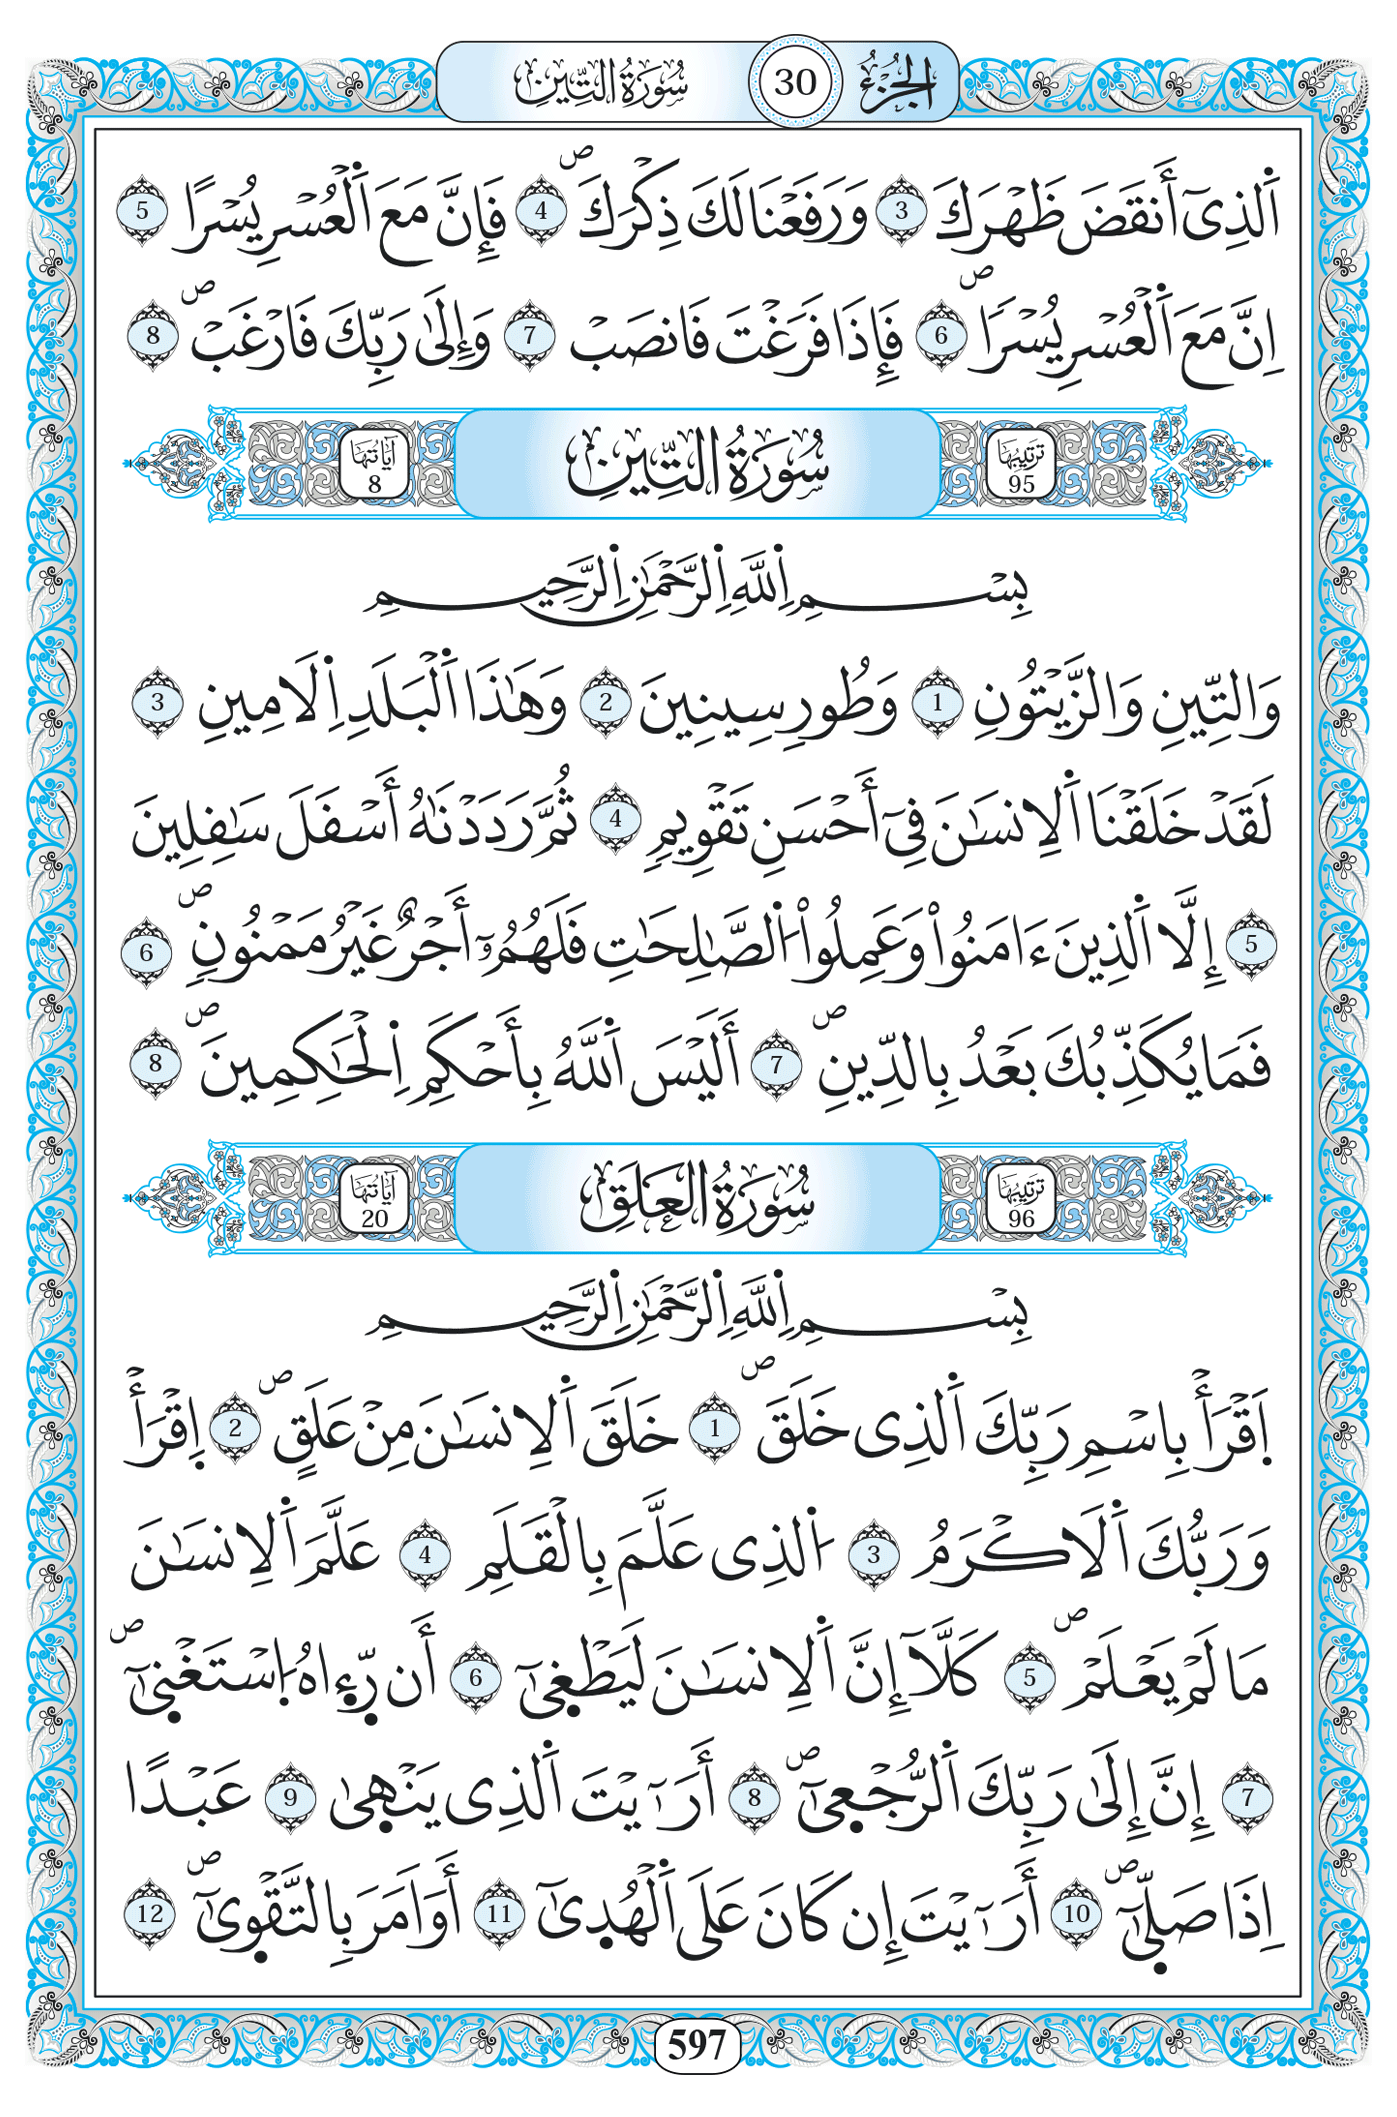 الجزء 30 سورة التين
اَ۬لذِےٓ أَنقَضَ ظَهْرَكَ 3 وَرَفَعْنَا لَكَ ذِكْرَكَۖ 4 فَإِنَّ مَعَ اَ۬لْعُسْرِ يُسْراً 5
اِنَّ مَعَ اَ۬لْعُسْرِ يُسْراًۖ 6 فَإِذَا فَرَغْتَ فَانصَبْ 7 وَإِلَىٰ رَبِّكَ فَارْغَبْۖ 8
ترتيبها 95 سُورَةُ التِّينِ آياتها 8
بِسْمِ اِ۬للَّهِ اِ۬لرَّحْمَٰنِ اِ۬لرَّحِيمِ
وَالتِّينِ وَالزَّيْتُونِ 1 وَطُورِ سِينِينَ 2 وَهَٰذَا اَ۬لْبَلَدِ اِ۬لَامِينِ 3
لَقَدْ خَلَقْنَا اَ۬لِانسَٰنَ فِےٓ أَحْسَنِ تَقْوِيمٖ 4 ثُمَّ رَدَدْنَٰهُ أَسْفَلَ سَٰفِلِينَ
5 إِلَّا اَ۬لذِينَ ءَامَنُواْ وَعَمِلُواْ اُ۬لصَّٰلِحَٰتِ فَلَهُمُۥٓ أَجْرٌ غَيْرُ مَمْنُونٖۖ 6
فَمَا يُكَذِّبُكَ بَعْدُ بِالدِّينِۖ 7 أَلَيْسَ اَ۬للَّهُ بِأَحْكَمِ اِ۬لْحَٰكِمِينَۖ 8
ترتيبها 96 سُورَةُ الْعَلَقِ آياتها 20
بِسْمِ اِ۬للَّهِ اِ۬لرَّحْمَٰنِ اِ۬لرَّحِيمِ
اِ۪قْرَأْ بِاسْمِ رَبِّكَ اَ۬لذِے خَلَقَۖ 1 خَلَقَ اَ۬لِانسَٰنَ مِنْ عَلَقٍۖ 2 اِ۪قْرَأْ
وَرَبُّكَ اَ۬لَاكْرَمُ 3 اُ۬لذِے عَلَّمَ بِالْقَلَمِ 4 عَلَّمَ اَ۬لِانسَٰنَ
مَا لَمْ يَعْلَمْۖ 5 كَلَّآ إِنَّ اَ۬لِانسَٰنَ لَيَطْغ۪ىٰٓ 6 أَن رّ۪ء۪اهُ اُ۪سْتَغْن۪ىٰٓۖ
7 إِنَّ إِلَىٰ رَبِّكَ اَ۬لرُّجْع۪ىٰٓۖ 8 أَرَٰٓيْتَ اَ۬لذِے يَنْه۪ىٰ 9 عَبْداً
اِذَا صَلّ۪ىٰٓۖ 10 أَرَٰٓيْتَ إِن كَانَ عَلَى اَ۬لْهُد۪ىٰٓ 11 أَوَ اَمَرَ بِالتَّقْو۪ىٰٓۖ 12
597